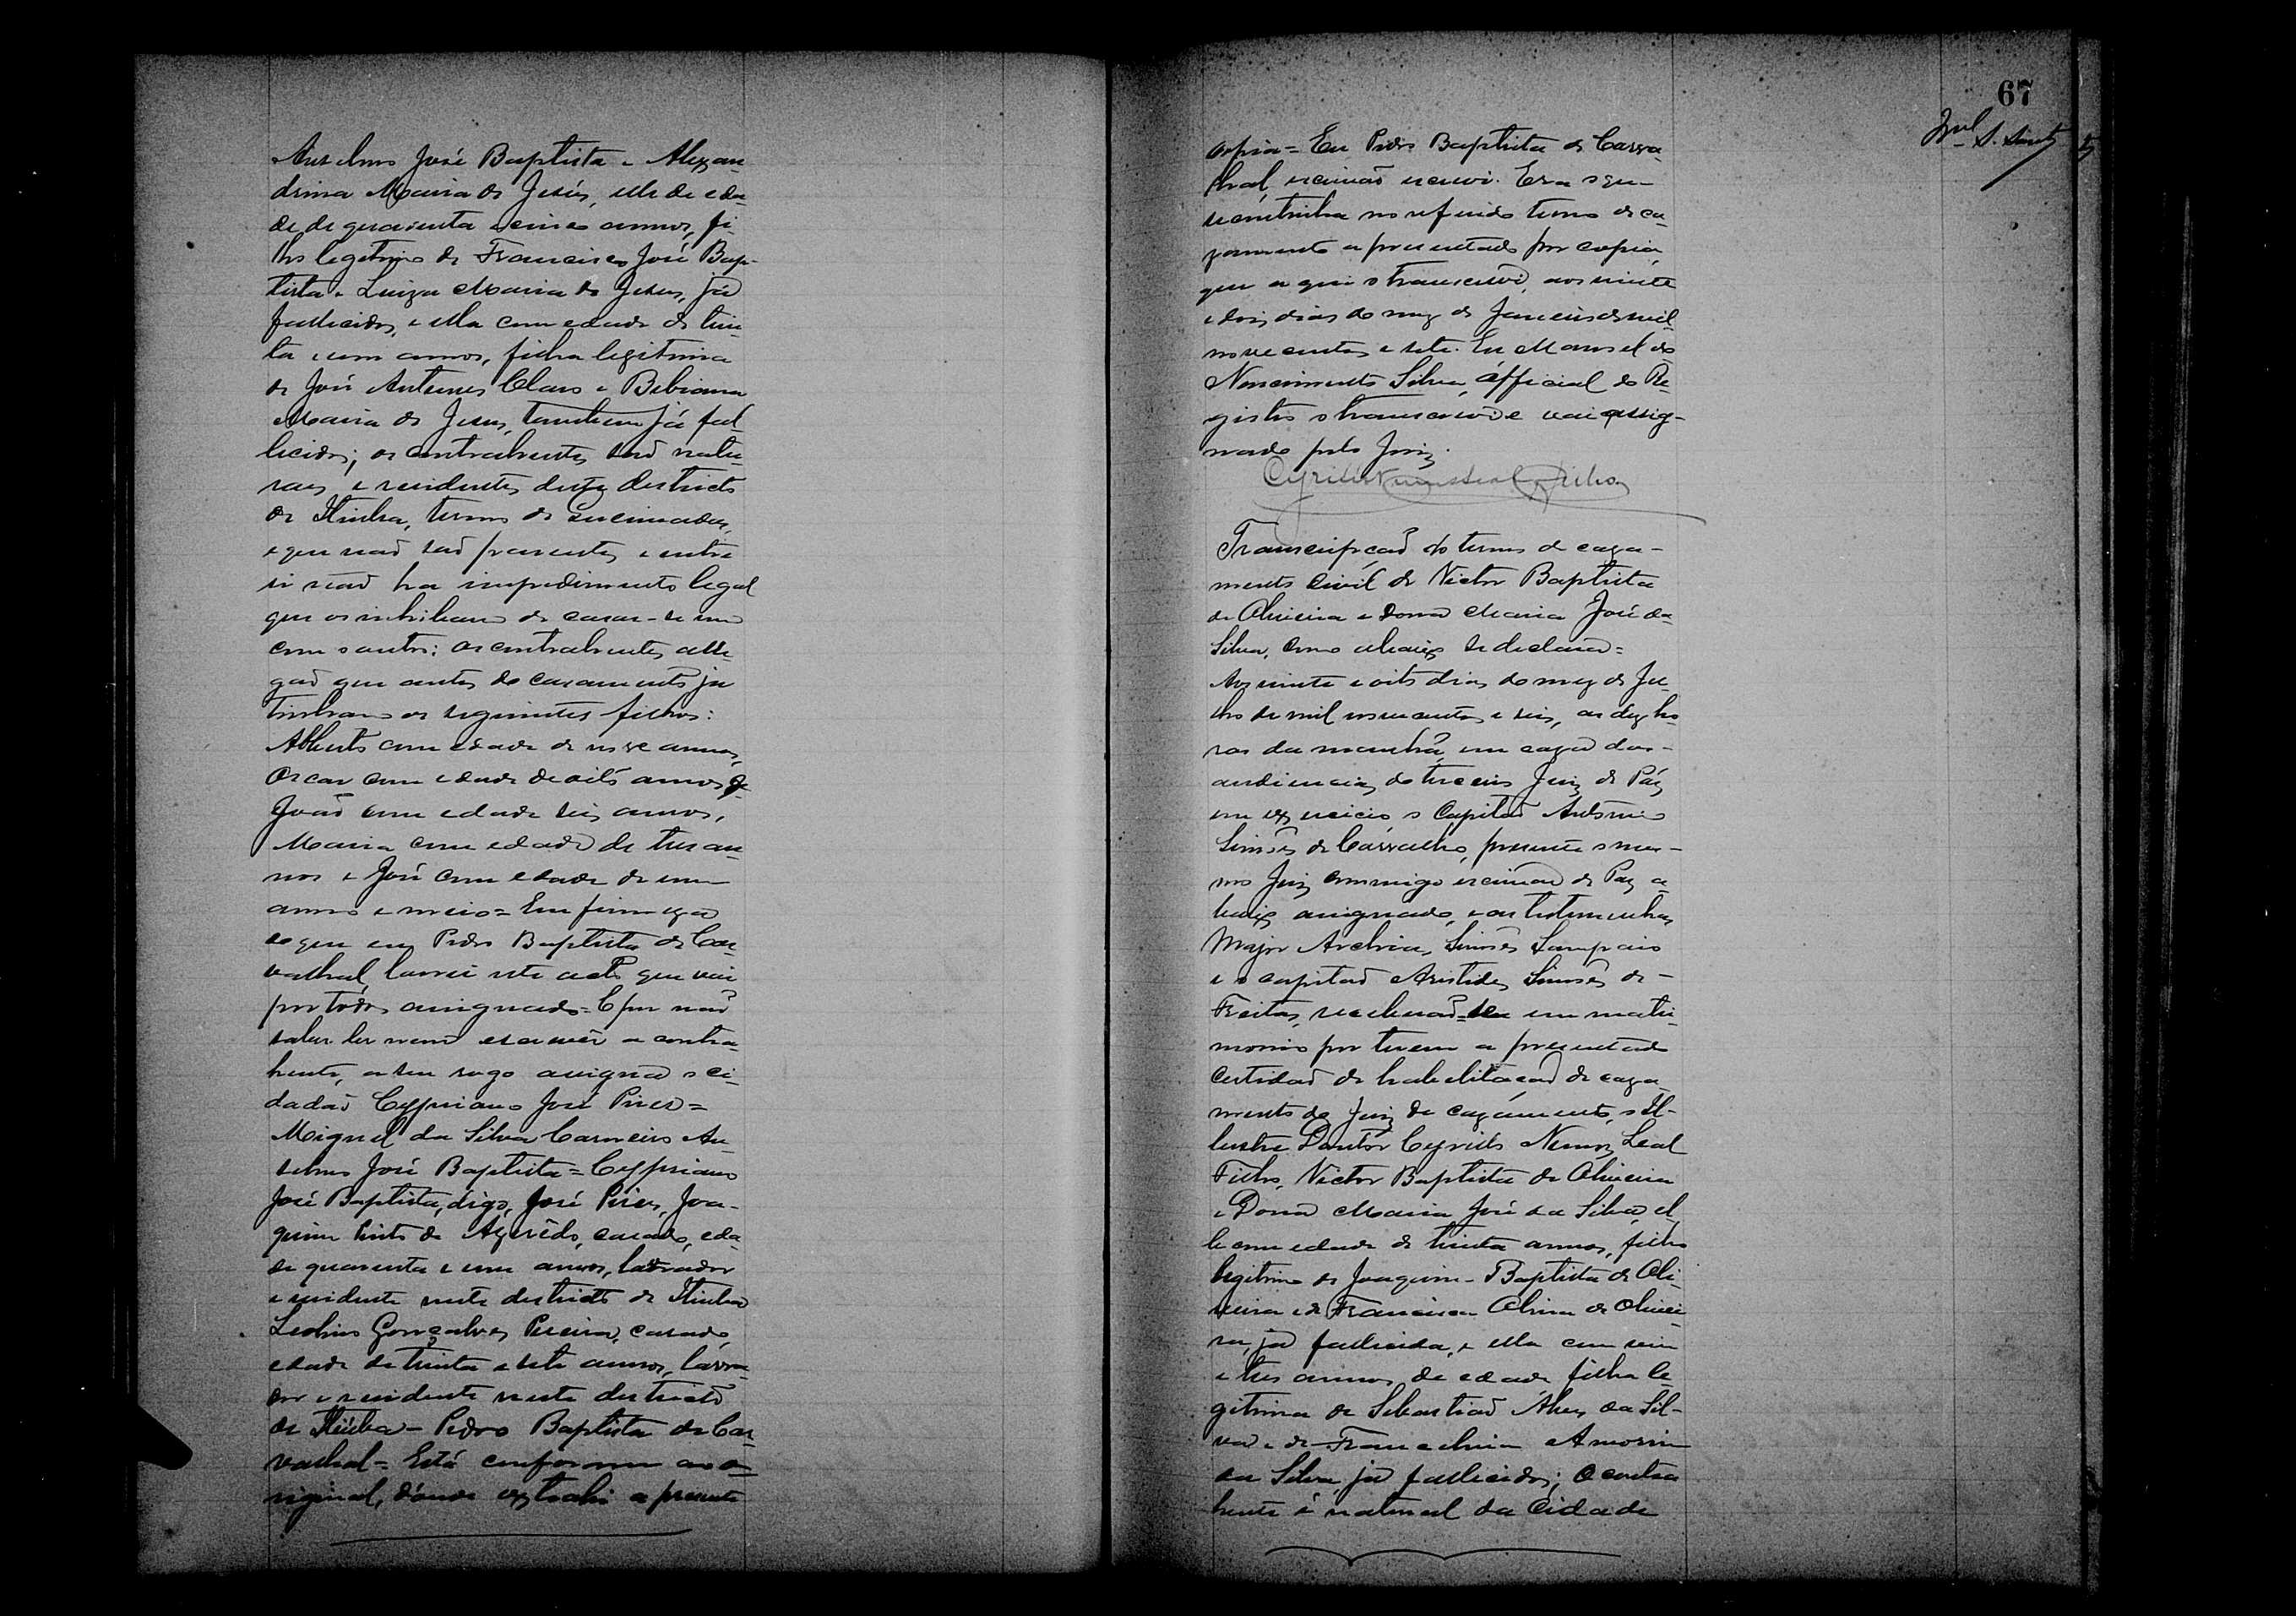 Anselmo José Baptista e Alexan-
drina Maria de Jesús, elle de eda-
de de quarenta e cinco annos, fi-
lho legitimo de Francisco José Bap-
tista e Luiza Maria de Jesus, já
fallecidos, e ella com edade de trin-
ta e um annos, filha legitima
de José Antunes Claro e Bibiana
Maria de Jesus, tambem já fal-
licidos; os contrahentes são natu-
raes e residentes deste districto
de Itiuba, termo de
e que não são parentes e entre
si não ha impedimento legal
que os inhibam de casar-se um
com o outro: os contrahentes alle-
gão que antes do casamento já
tinham os seguintes filhos:
Alberto com edade de nove annos,
Oscar com edade de oito annos,
João com edade seis annos,
Maria com edade de tres an-
nos e José com edade de um
anno e meio = Em firmeza
do que eu Pedro Baptista de Car-
valhal, lavrei este acto que vai
por todos assignado = E por não
saber ler nem escrever a contra-
hente, a seu rogo assigna o ci-
dadão Cypriano José Pires =
Miguel da Silva Carneiro An-
selmo José Baptista = Cypriano
José Baptista, digo, José Pires, Joa-
quim Pinto de Azevêdo, casado, eda-
de quarenta e um annos, lavrador
e residente neste districto de Itiuba
Leolino Gonçalves Pereira, casado
edade de trinta e sete annos, lavra-
dor e residente neste districto
de Itiúba - Pedro Baptista de Car-
valhal = Está conforme ao o-
riginal, d'onde extrahi a presente
67
copia = Eu Pedro Baptista de Carva-
lhal, escrivão escrevi. Era o que
se continha no referido termo de ca-
zamento apresentado por copia,
que aqui o transcrevi, aos vinte
e dois dias do mez de Janeiro de mil
novecentos e sete. Eu Manoel do
Nascimento Silva, Official do Re-
gistro o transcrevi e vai assig-
nado pelo Juiz.
Cyrillo Nunes Leal Filho
Transcripção do termo de caza-
mento civil de Victor Baptista
de Oliveira e Dona Maria José da
Silva, como abaixo se declara =
Aos vinte e oito dias do mez de Ju-
lho de mil novecentos e seis, as dez ho-
ras da manhã, em caza das
audiencias do terceiro Juiz de Páz
em exercicio o Capitão Antonio
Simões de Carvalho, presente o mes-
mo Juiz commigo escrivão de Paz a-
baixo assignado, e as testemunhas
Major Archias Simões Sampaio
e o capitão Aristides Simões de
Freitas, receberão-se em matri-
monio por terem apresentado
certidão de habilitacão de caza-
mento do Juiz de cazamento, o Il-
lustre Doutor Cyrillo Nunes Leal
Filho, Victor Baptista de Oliveira
e Dona Maria José da Silva, el-
le com edade de trinta annos, filho
legitimo de Joaquim Baptista de Oli-
veira e de Francisca de Olivei-
ra, já fallecida, e ella com vin
e tres annos de edade filha le-
gitima de Sebastião Alves da Sil-
va e de Francelina Amorim
da Silva, já fallecidos; O contra
hente é natural da Cidade